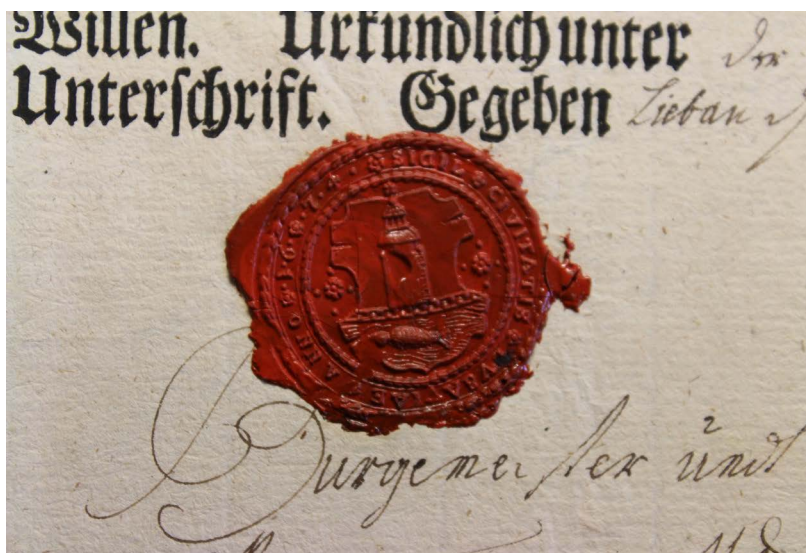 Willen. Urkundlich unter der
Unterſchrift. Gegeben Lieban
SIGIL CIVITATIS ANNO 1674
Burgemeiſter undt